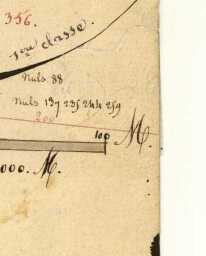 356.
1ère classe.
Nuls 88
Nuls 137 235 244 259
200
100 M.
000. M.